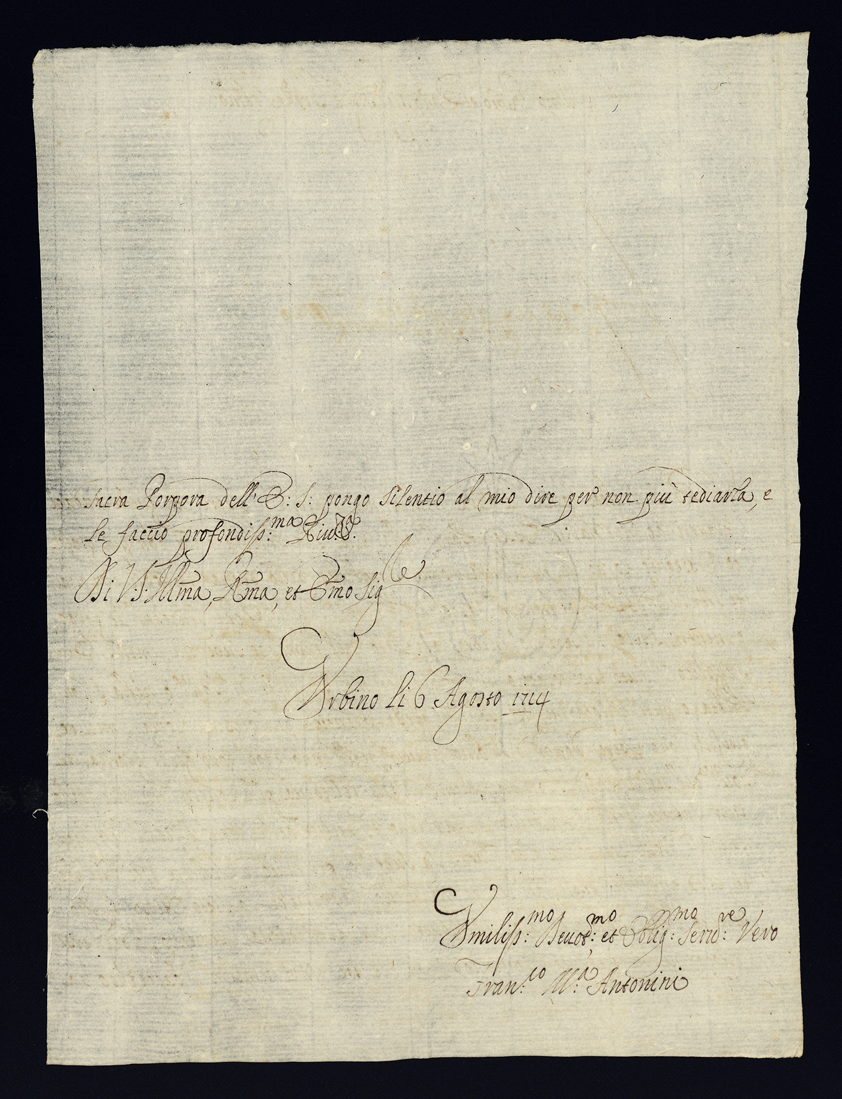 sacra Porpora dell' E: S: pongo silentio al mio dire per non più tediarla, e
le faccio profondiss:ma Riv:za.
Di V: S: Illma, Rma, et Emo Sigle
Urbino li 6 Agosto 1714
Umiliss:mo Devot:mo et Oblig:mo Servd:re Vero
Fran:co Ma: Antonini